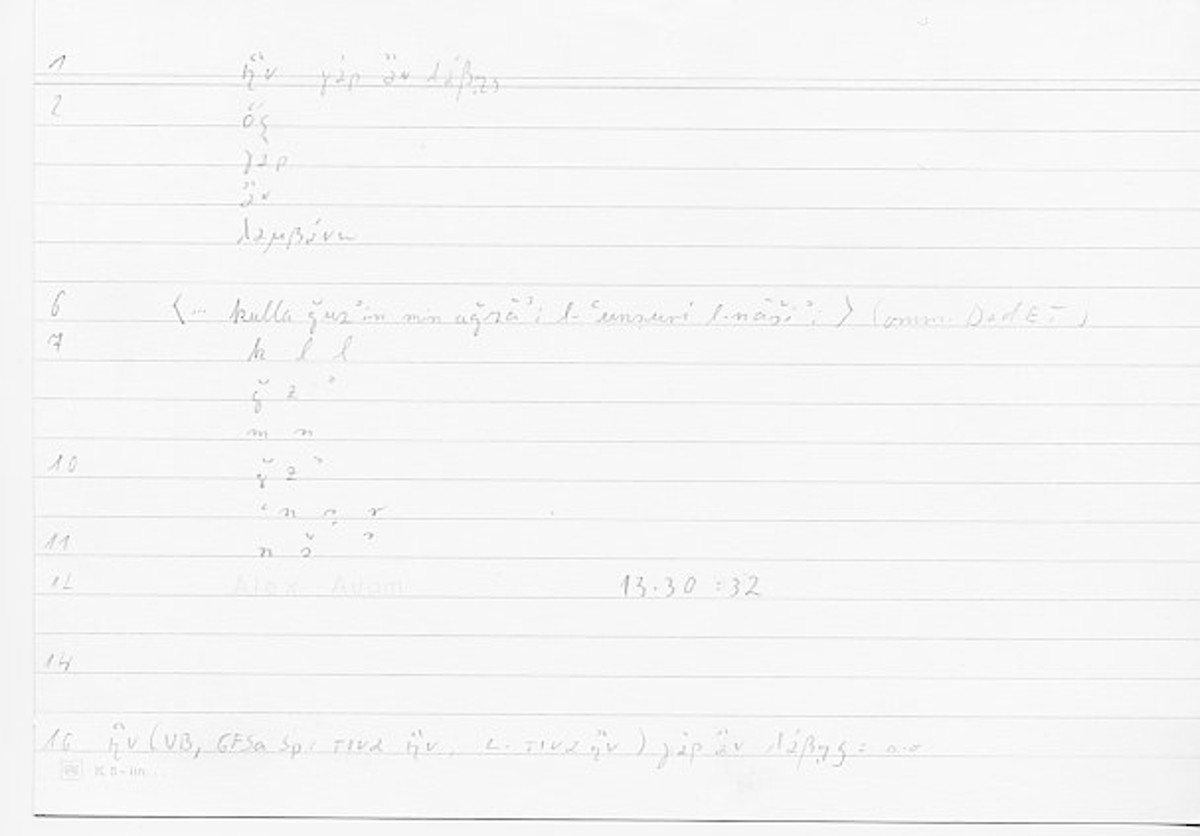 1 ἣν γὰρ ἂν λάβῃς
2 ὅς
γάρ
ἄν
λαμβάνω
6 <... kulla ǧuzʾin min aǧzāʾi l-ʿunṣuri l-nāšiʾi > Comm. D
7 k l l
ǧ z ʾ
m n
10 ǧ z ʾ
ʿ n ṣ r
11 n š ʾ
12 Alex Av 13.30 :32
14
16 ἣν (VB, GFSa Sp: τινα ἣν, L: τινα ἣν) γὰρ ἂν λάβῃς :